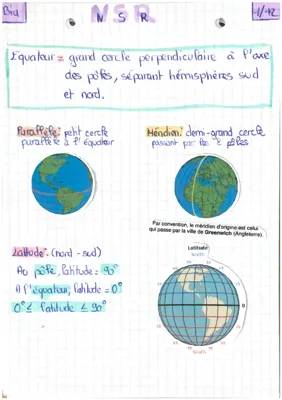 NSR
1/12
Equateur = grand cercle perpendiculaire à l'axe
des pôles, séparant hémisphères sud
et nord.
Parallèle: petit cercle
parallèle à l'équateur
Méridien: demi-grand cercle
passant par les 2 pôles
Par convention, le méridien d'origine est celui
qui passe par la ville de Greenwich (Angleterre).
Latitude: (nord - sud)
Au pôle, latitude = 90°
A l'équateur, latitude = 0°
0° ≤ latitude ≤ 90°
Latitude
North
0
South